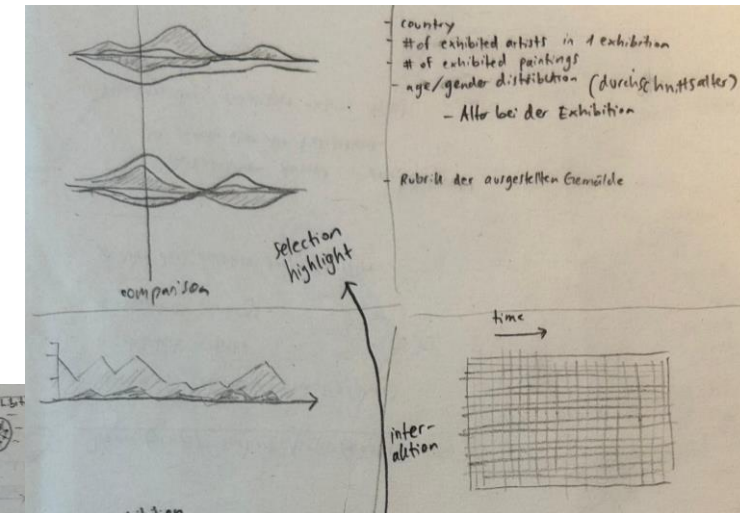 country
# of exhibited artists in 1 exhibition
# of exhibited paintings
age/gender distribution (durchschnittsalter)
- Alter bei der Exhibition
Rubrik der ausgestellten Gemälde
comparison
selection
highlight
time
inter-
aktion